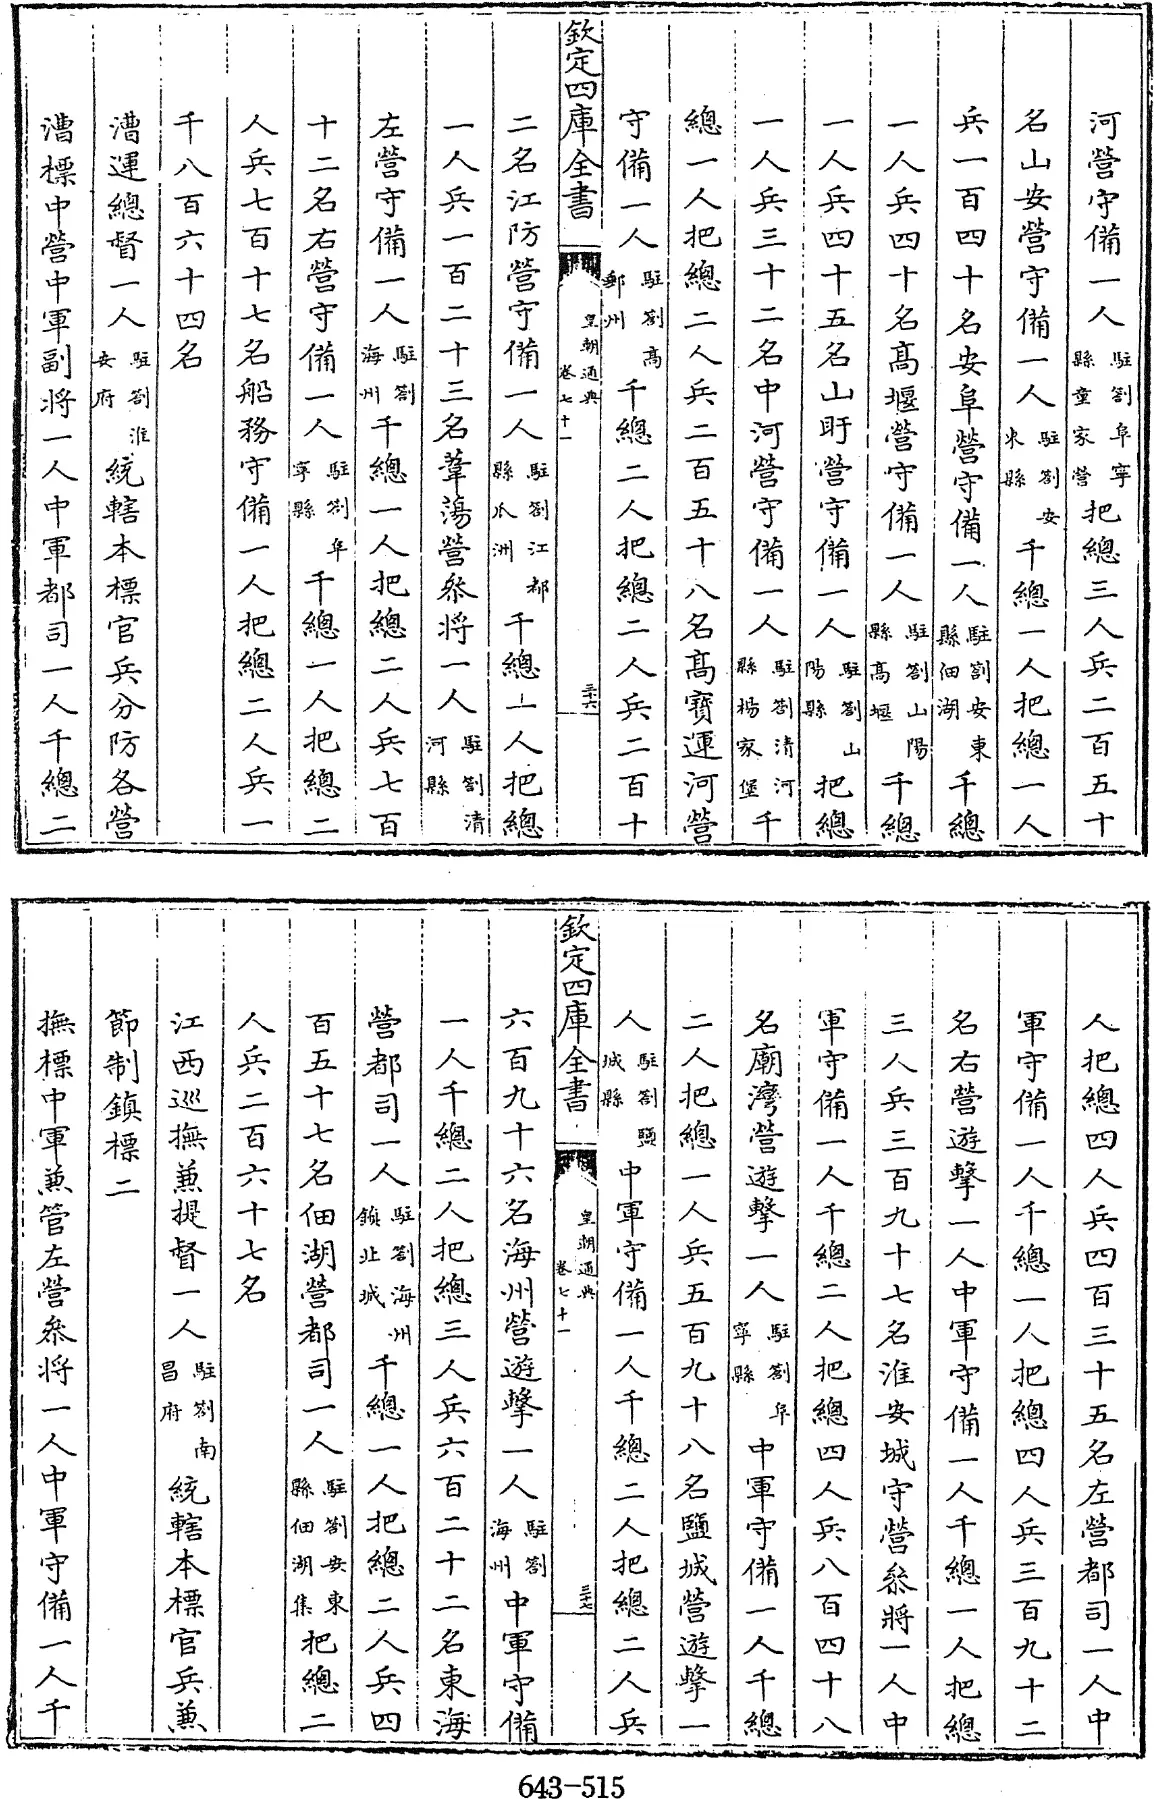 河營守備一人駐劄阜寧縣童家營把總三人兵二百五十
名山安營守備一人駐劄安東縣千總一人把總一人
兵一百四十名安阜營守備一人駐劄安東縣佃湖千總
一人兵四十名高堰營守備一人駐劄山陽縣高堰千總
一人兵四十五名山盱營守備一人駐劄山陽縣把總
一人兵三十二名中河營守備一人駐劄清河縣楊家堡千
總一人把總二人兵二百五十八名高寶運河營
守備一人駐劄高郵州千總二人把總二人兵二百十
欽定四庫全書 皇朝通典 卷七十一 三十六
二名江防營守備一人駐劄江都縣瓜洲千總一人把總
一人兵一百二十三名葦蕩營叅將一人駐劄清河縣
左營守備一人駐劄海州千總一人把總二人兵七百
十二名右營守備一人駐劄阜寧縣千總一人把總二
人兵七百十七名船務守備一人把總二人兵一
千八百六十四名
漕運總督一人駐劄淮安府統轄本標官兵分防各營
漕標中營中軍副將一人中軍都司一人千總二
人把總四人兵四百三十五名左營都司一人中
軍守備一人千總一人把總四人兵三百九十二
名右營遊擊一人中軍守備一人千總一人把總
三人兵三百九十七名淮安城守營叅將一人中
軍守備一人千總二人把總四人兵八百四十八
名廟灣營遊擊一人駐劄阜寧縣中軍守備一人千總
二人把總一人兵五百九十八名鹽城營遊擊一
人駐劄鹽城縣中軍守備一人千總二人把總二人兵
欽定四庫全書 皇朝通典 卷七十一 三十七
六百九十六名海州營遊擊一人駐劄海州中軍守備
一人千總二人把總三人兵六百二十二名東海
營都司一人駐劄海州鎮北城千總一人把總二人兵四
百五十七名佃湖營都司一人駐劄安東縣佃湖集把總二
人兵二百六十七名
江西巡撫兼提督一人駐劄南昌府統轄本標官兵兼
節制鎮標二
撫標中軍兼管左營叅將一人中軍守備一人千
643-515